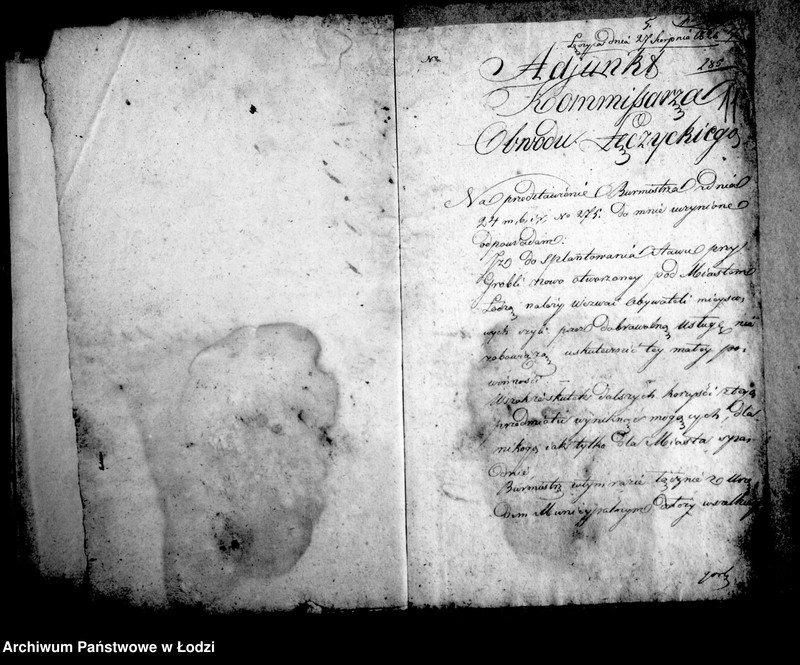 5.
Łęczyca dnia 27 Sierpnia 1825
No.
285
Adjunkt
Kommissarza
Obwodu Łęczyckiego
Na przedstawienie Burmistrza z dnia
24 m. b. i r. No 275. do mnie uczynione
odpowiadam:
Iż do splantowania Stawu przy
Grobli nowo otworzoney pod Miastem
Łodzią należy wezwać Obywateli mieysco-
wych czyli przez dobrowolną usługę nie
zobowiążą uskutecznić tey małey po-
winności
Wszak że skutek dalszych korzyści z tego
przedmiotu wyniknąć mogących, dla
nikogo iak tylko dla Miasta spa-
dnie
Burmistrz w tym razie łącznie z Urzę-
dem Municypalnym dołoży wszelkiey
gorli
Archiwum Państwowe w Łodzi